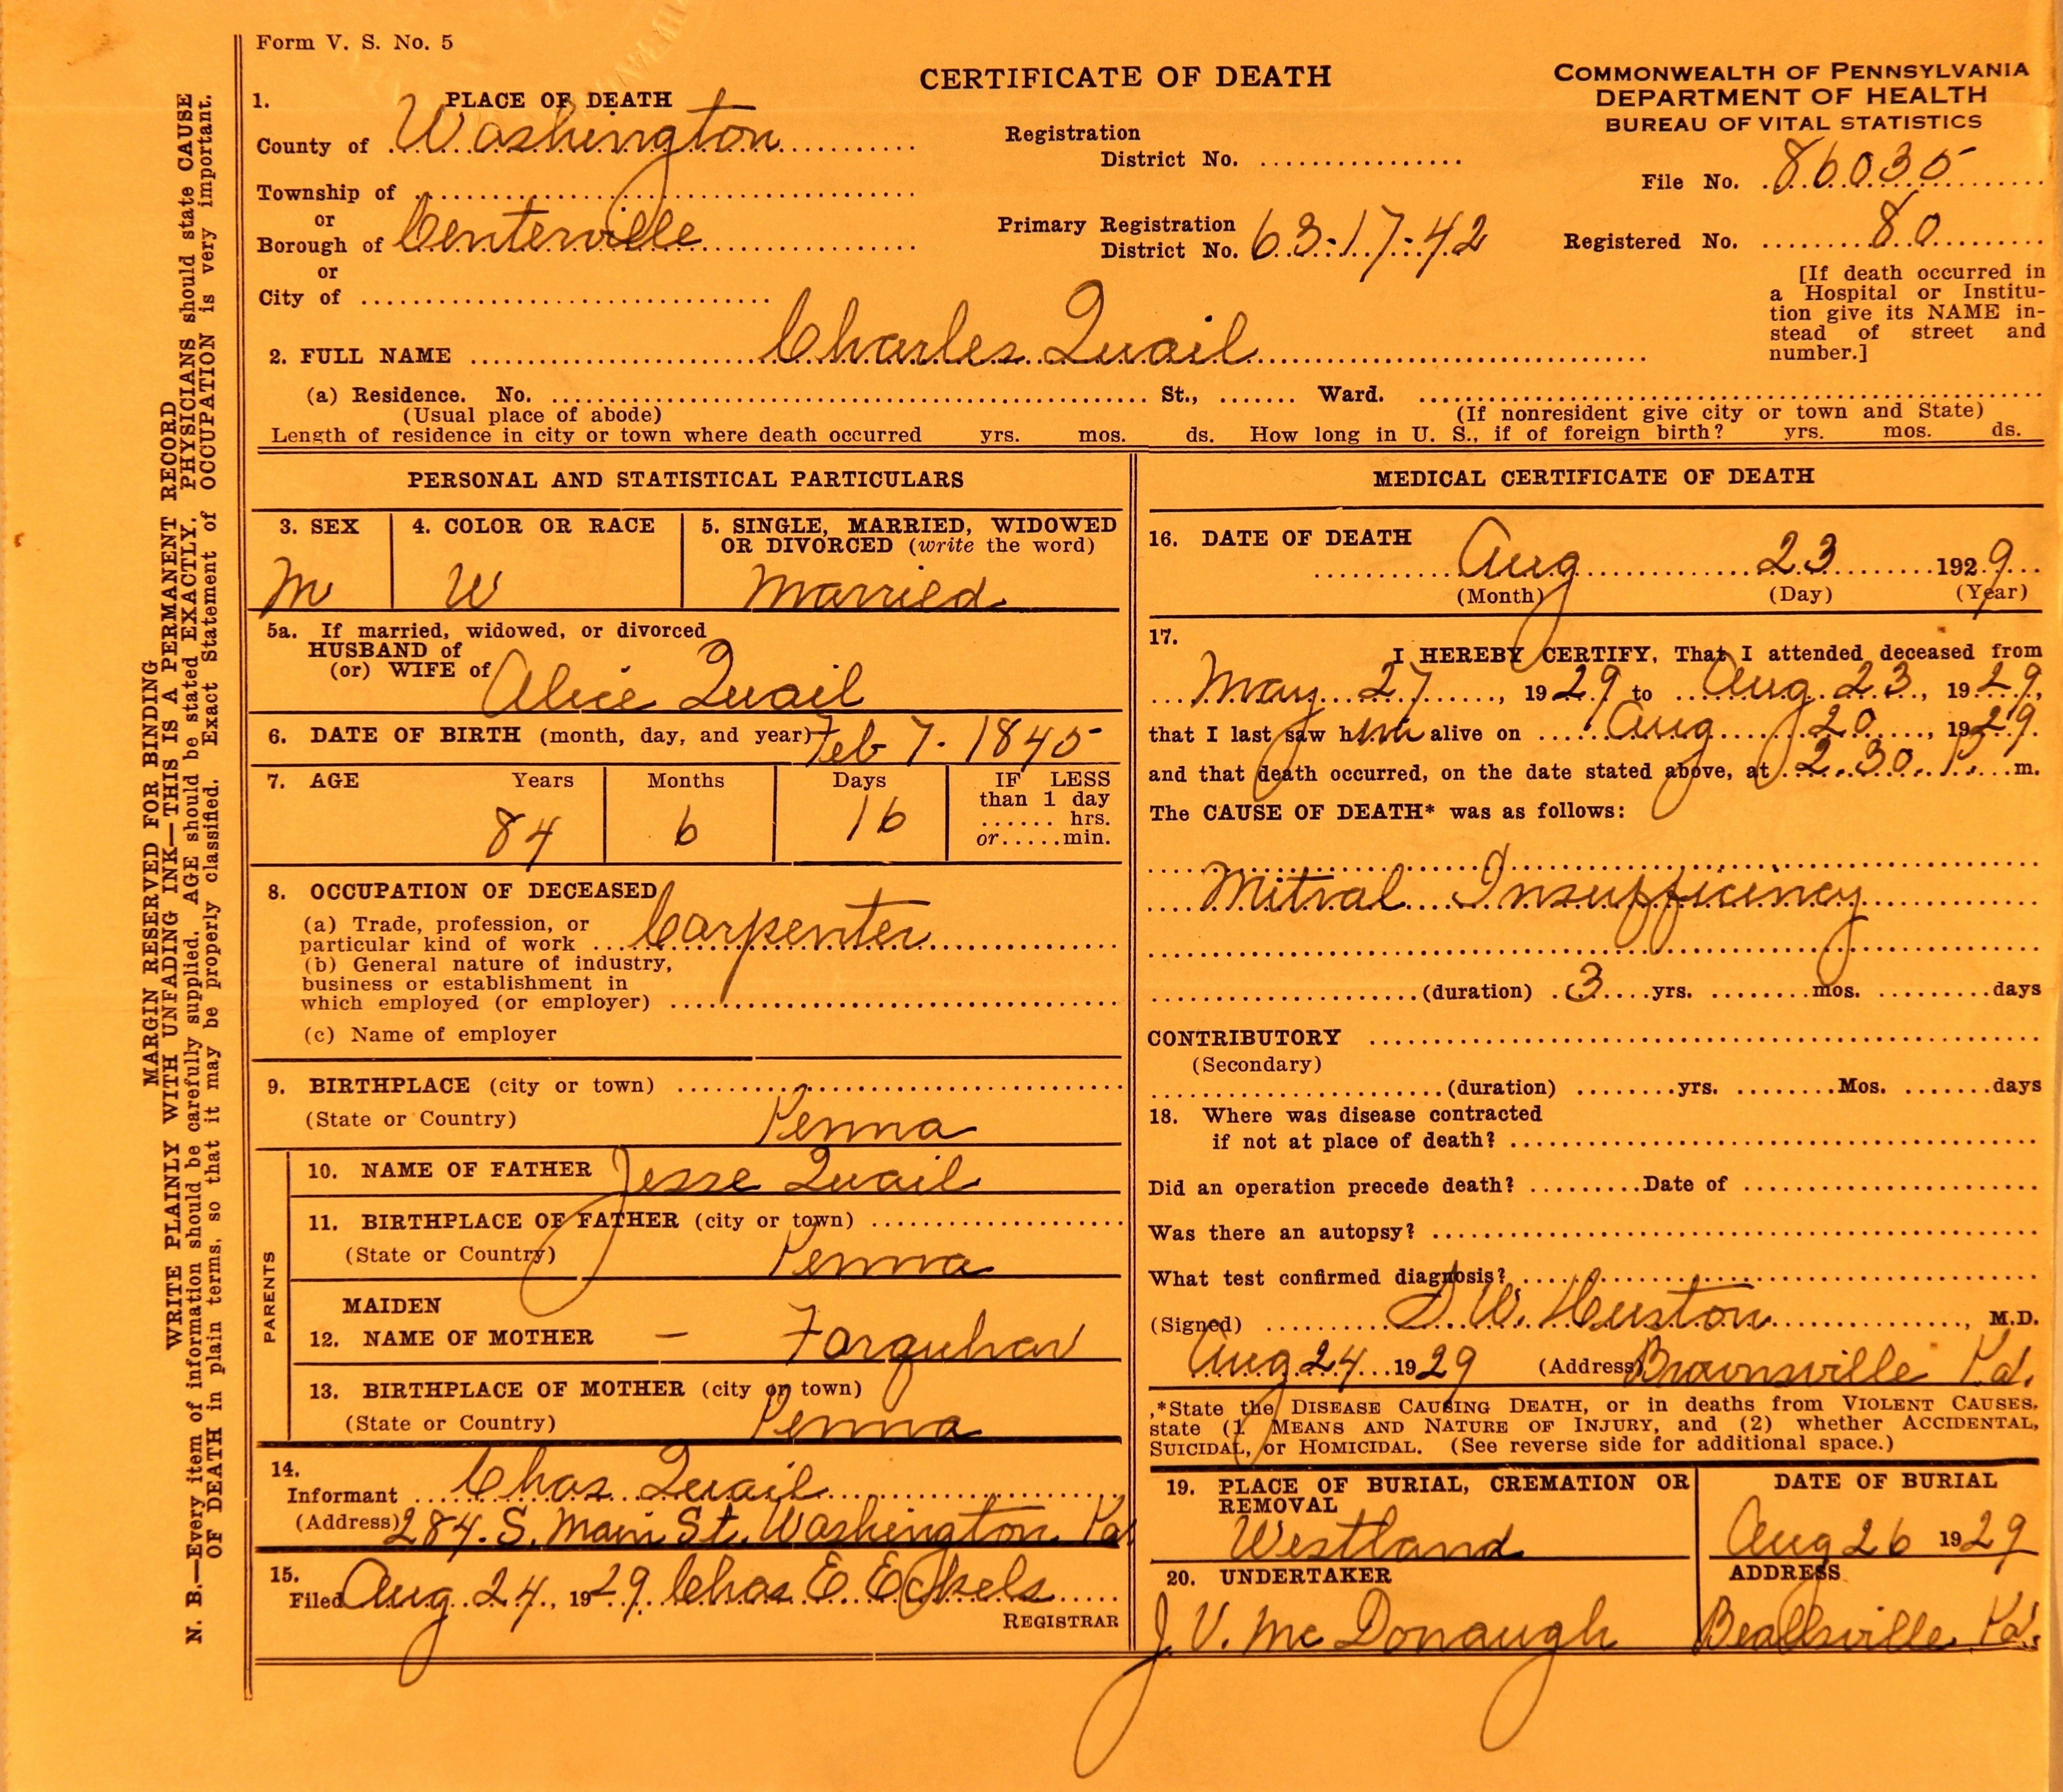 Form V. S. No. 5
CERTIFICATE OF DEATH
COMMONWEALTH OF PENNSYLVANIA
DEPARTMENT OF HEALTH
BUREAU OF VITAL STATISTICS
1. PLACE OF DEATH
County of Washington
Registration
District No.
File No. 86035
Township of
or
Borough of Centerville
Primary Registration
District No. 63-17-42
Registered No. 80
or
City of
[If death occurred in
a Hospital or Institu-
tion give its NAME in-
stead of street and
number.]
2. FULL NAME Charles Quail
(a) Residence. No. St., Ward.
(Usual place of abode) (If nonresident give city or town and State)
Length of residence in city or town where death occurred yrs. mos. ds. How long in U. S., if of foreign birth? yrs. mos. ds.
PERSONAL AND STATISTICAL PARTICULARS
3. SEX 4. COLOR OR RACE 5. SINGLE, MARRIED, WIDOWED
OR DIVORCED (write the word)
M W Married
5a. If married, widowed, or divorced
HUSBAND of
(or) WIFE of Alice Quail
6. DATE OF BIRTH (month, day, and year) Feb 7. 1845
7. AGE Years Months Days IF LESS
than 1 day
hrs.
or min.
84 6 16
8. OCCUPATION OF DECEASED
(a) Trade, profession, or
particular kind of work Carpenter
(b) General nature of industry,
business or establishment in
which employed (or employer)
(c) Name of employer
9. BIRTHPLACE (city or town)
(State or Country) Penna
PARENTS
10. NAME OF FATHER Jesse Quail
11. BIRTHPLACE OF FATHER (city or town)
(State or Country) Penna
MAIDEN
12. NAME OF MOTHER — Farquhar
13. BIRTHPLACE OF MOTHER (city or town)
(State or Country) Penna
14.
Informant Chas Quail
(Address) 284. S. Main St. Washington Pa.
15.
Filed Aug 24, 1929 Chas E Eckels
REGISTRAR
MEDICAL CERTIFICATE OF DEATH
16. DATE OF DEATH
Aug 23 1929
(Month) (Day) (Year)
17.
I HEREBY CERTIFY, That I attended deceased from
May 27, 1929 to Aug 23, 1929,
that I last saw him alive on Aug 20, 1929
and that death occurred, on the date stated above, at 2.30 P. m.
The CAUSE OF DEATH* was as follows:
Mitral Insufficiency
(duration) 3 yrs. mos. days
CONTRIBUTORY
(Secondary)
(duration) yrs. Mos. days
18. Where was disease contracted
if not at place of death?
Did an operation precede death? Date of
Was there an autopsy?
What test confirmed diagnosis?
(Signed) W. Huston, M.D.
Aug 24 1929 (Address) Brownsville Pa.
*State the DISEASE CAUSING DEATH, or in deaths from VIOLENT CAUSES,
state (1 MEANS AND NATURE OF INJURY, and (2) whether ACCIDENTAL,
SUICIDAL, or HOMICIDAL. (See reverse side for additional space.)
19. PLACE OF BURIAL, CREMATION OR
REMOVAL
Westland
DATE OF BURIAL
Aug 26 1929
20. UNDERTAKER
J. V. McDonaugh
ADDRESS
Beallsville Pa.
MARGIN RESERVED FOR BINDING
WRITE PLAINLY WITH UNFADING INK—THIS IS A PERMANENT RECORD
N. B.—Every item of information should be carefully supplied. AGE should be stated EXACTLY. PHYSICIANS should state CAUSE
OF DEATH in plain terms, so that it may be properly classified. Exact Statement of OCCUPATION is very important.